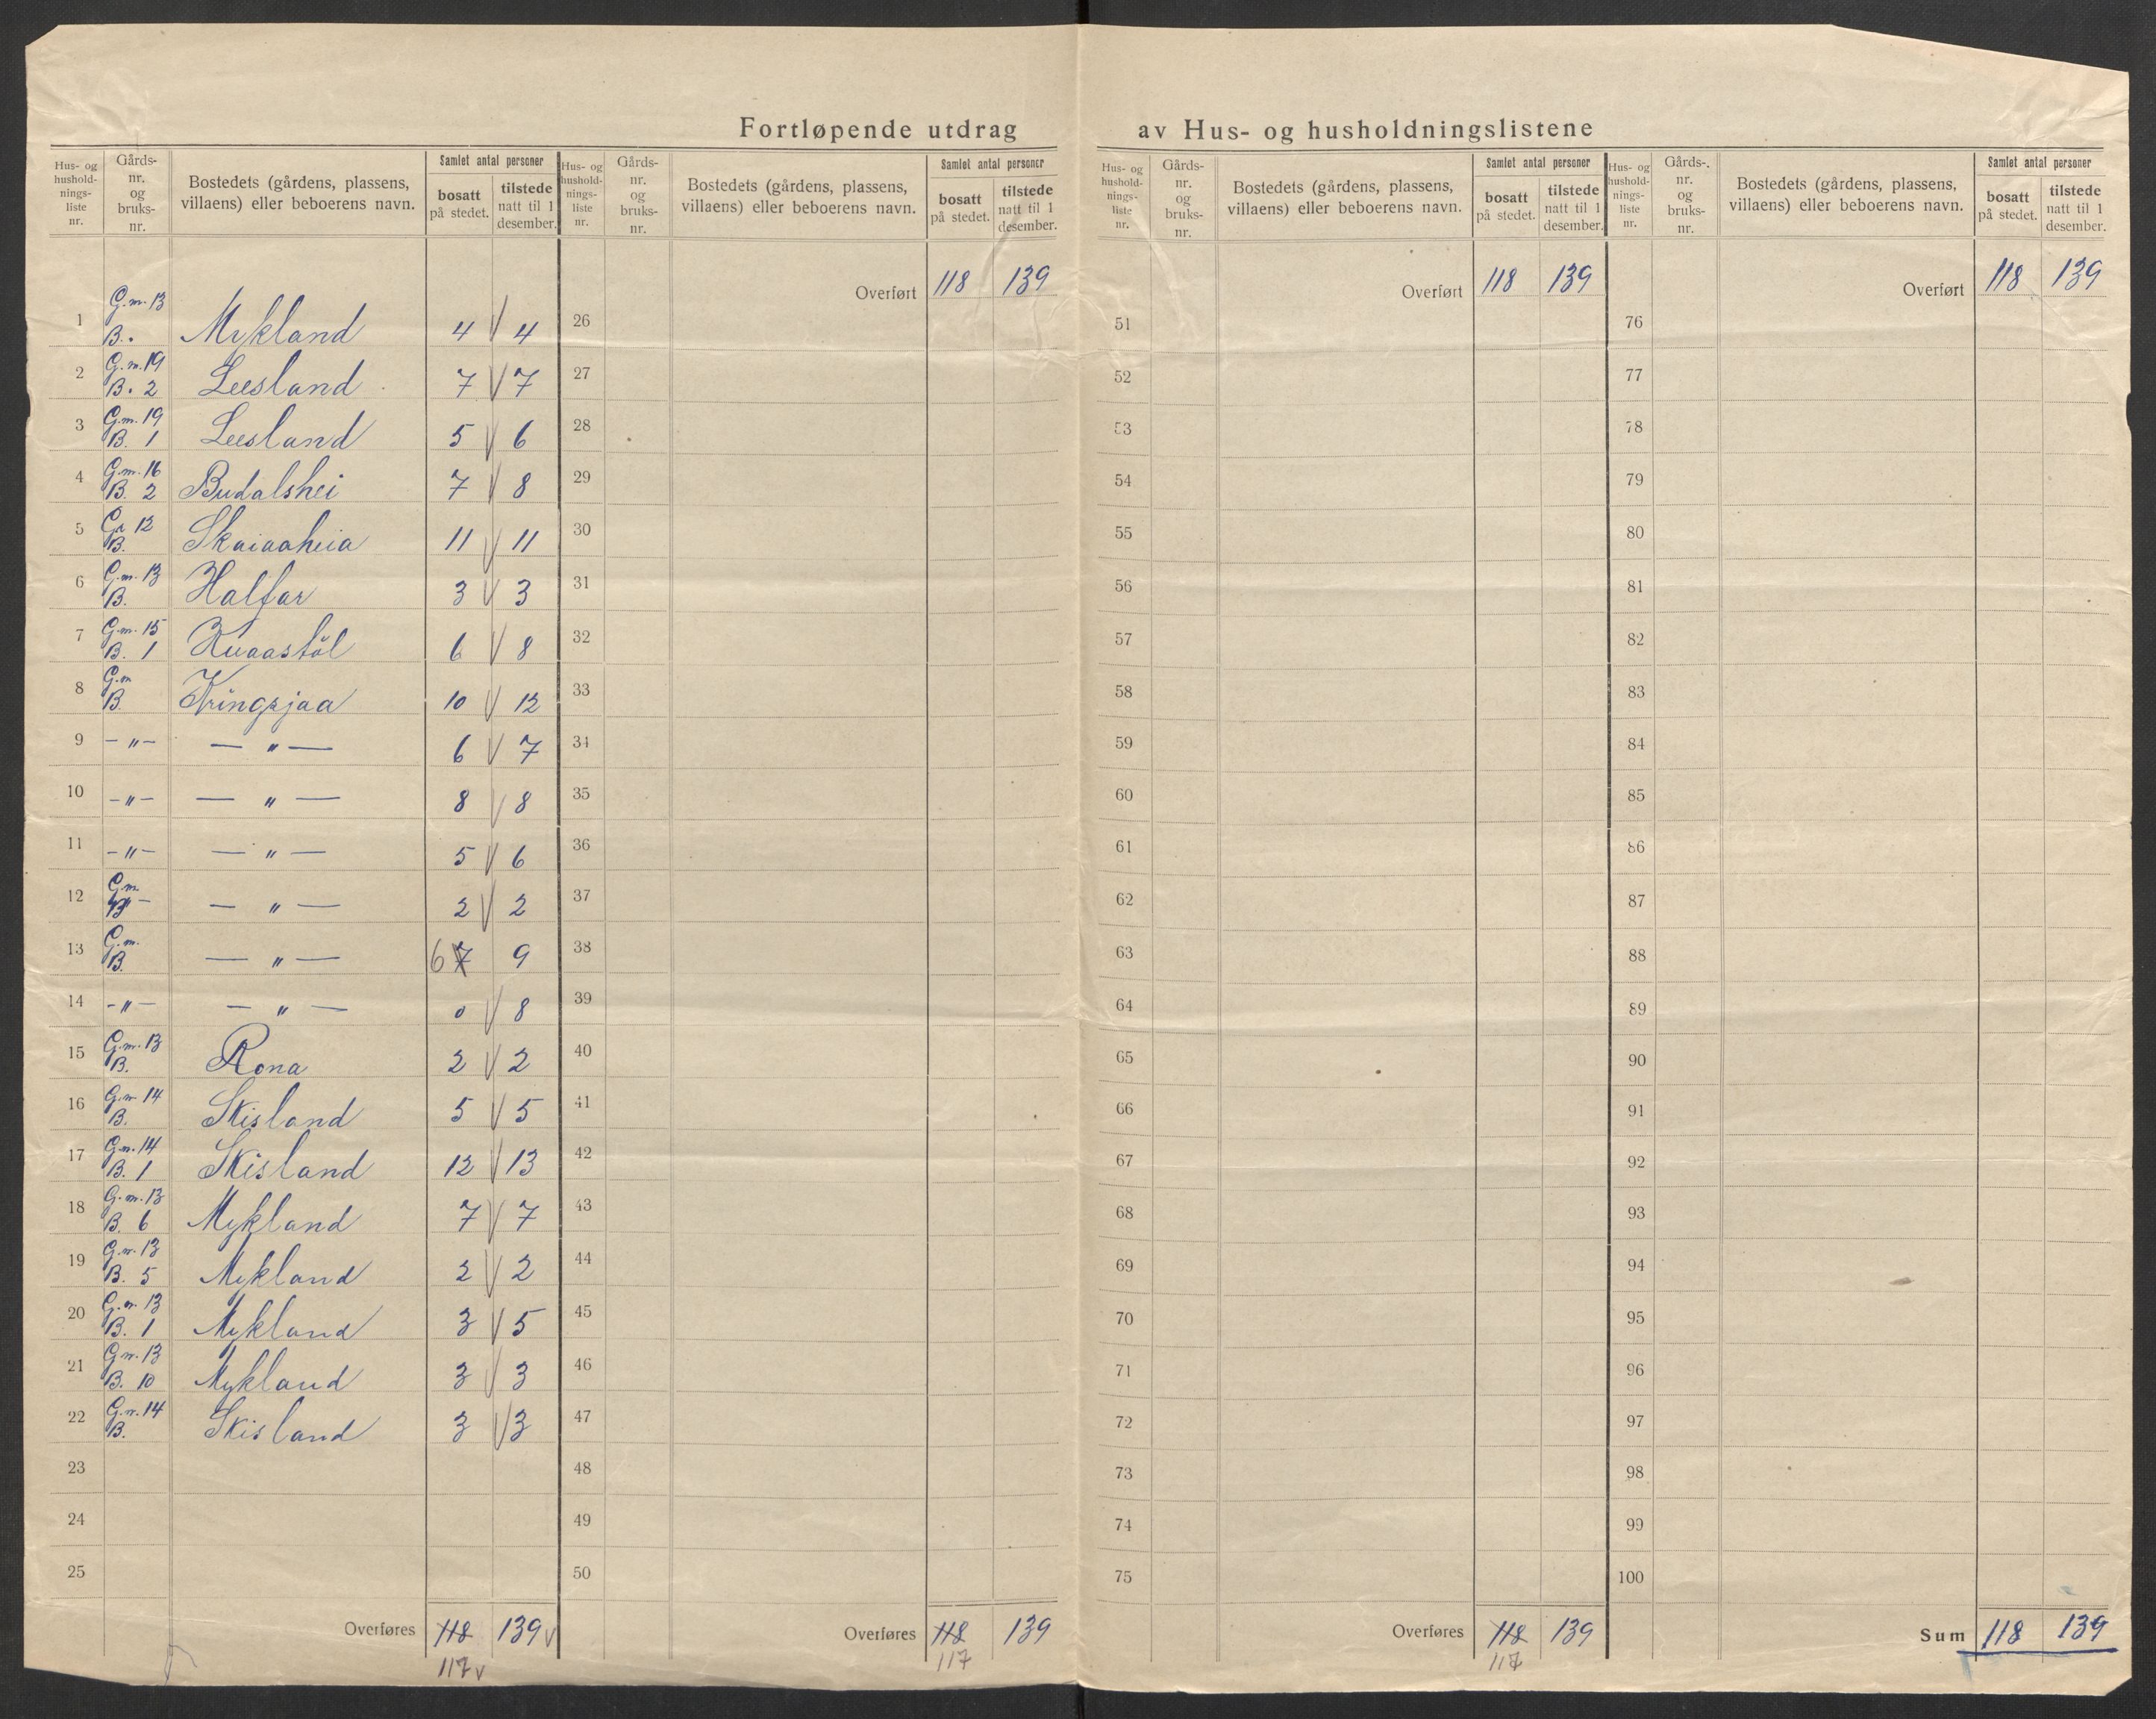 Fortløpende utdrag av Hus- og husholdningslistene
Hus- og husholdnings-liste nr. Gårds-nr. og bruks-nr. Bostedets (gårdens, plassens, villaens) eller beboerens navn. Samlet antal personer bosatt på stedet. tilstede natt til 1 desember.
1 G.nr. 13 B. Mykland 4 4
2 G.nr. 19 B. 2 Leesland 7 7
3 G.nr. 19 B. 1 Leesland 5 6
4 G.nr. 16 B. 2 Budalshei 7 8
5 Gr 12 B. Skaiaaheia 11 11
6 G.nr. 13 B. Halfar 3 3
7 G.nr. 15 B. 1 Kvaastöl 6 8
8 G.nr B. Kringsjaa 10 12
9 -"- -"- 6 7
10 -"- -"- 8 8
11 -"- -"- 5 6
12 G.nr B -"- 2 2
13 G.nr. B. -"- 6 7 9
14 -"- -"- 0 8
15 G.nr. 13 B. Rona 2 2
16 G.nr 14 B. Skisland 5 5
17 G.nr. 14 B. 1 Skisland 12 13
18 G.nr. 13 B. 6 Mykland 7 7
19 G.nr. 13 B. 5 Mykland 2 2
20 G.nr. 13 B. 1 Mykland 3 5
21 G.nr. 13 B. 10 Mykland 3 3
22 G.nr. 14 B. Skisland 3 3
23
24
25
Overføres 118 139
117
Hus- og husholdnings-liste nr. Gårds-nr. og bruks-nr. Bostedets (gårdens, plassens, villaens) eller beboerens navn. Samlet antal personer bosatt på stedet. tilstede natt til 1 desember.
Overført 118 139
26
27
28
29
30
31
32
33
34
35
36
37
38
39
40
41
42
43
44
45
46
47
48
49
50
Overføres 118 139
117
Hus- og hushold-nings-liste nr. Gårds-nr. og bruks-nr. Bostedets (gårdens, plassens, villaens) eller beboerens navn. Samlet antal personer bosatt på stedet. tilstede natt til 1 desember.
Overført 118 139
51
52
53
54
55
56
57
58
59
60
61
62
63
64
65
66
67
68
69
70
71
72
73
74
75
Overføres 118 139
117
Hus- og hushold-nings-liste nr. Gårds-nr. og bruks-nr. Bostedets (gårdens, plassens, villaens) eller beboerens navn. Samlet antal personer bosatt på stedet. tilstede natt til 1 desember.
Overført 118 139
76
77
78
79
80
81
82
83
84
85
86
87
88
89
90
91
92
93
94
95
96
97
98
99
100
Sum 118 139